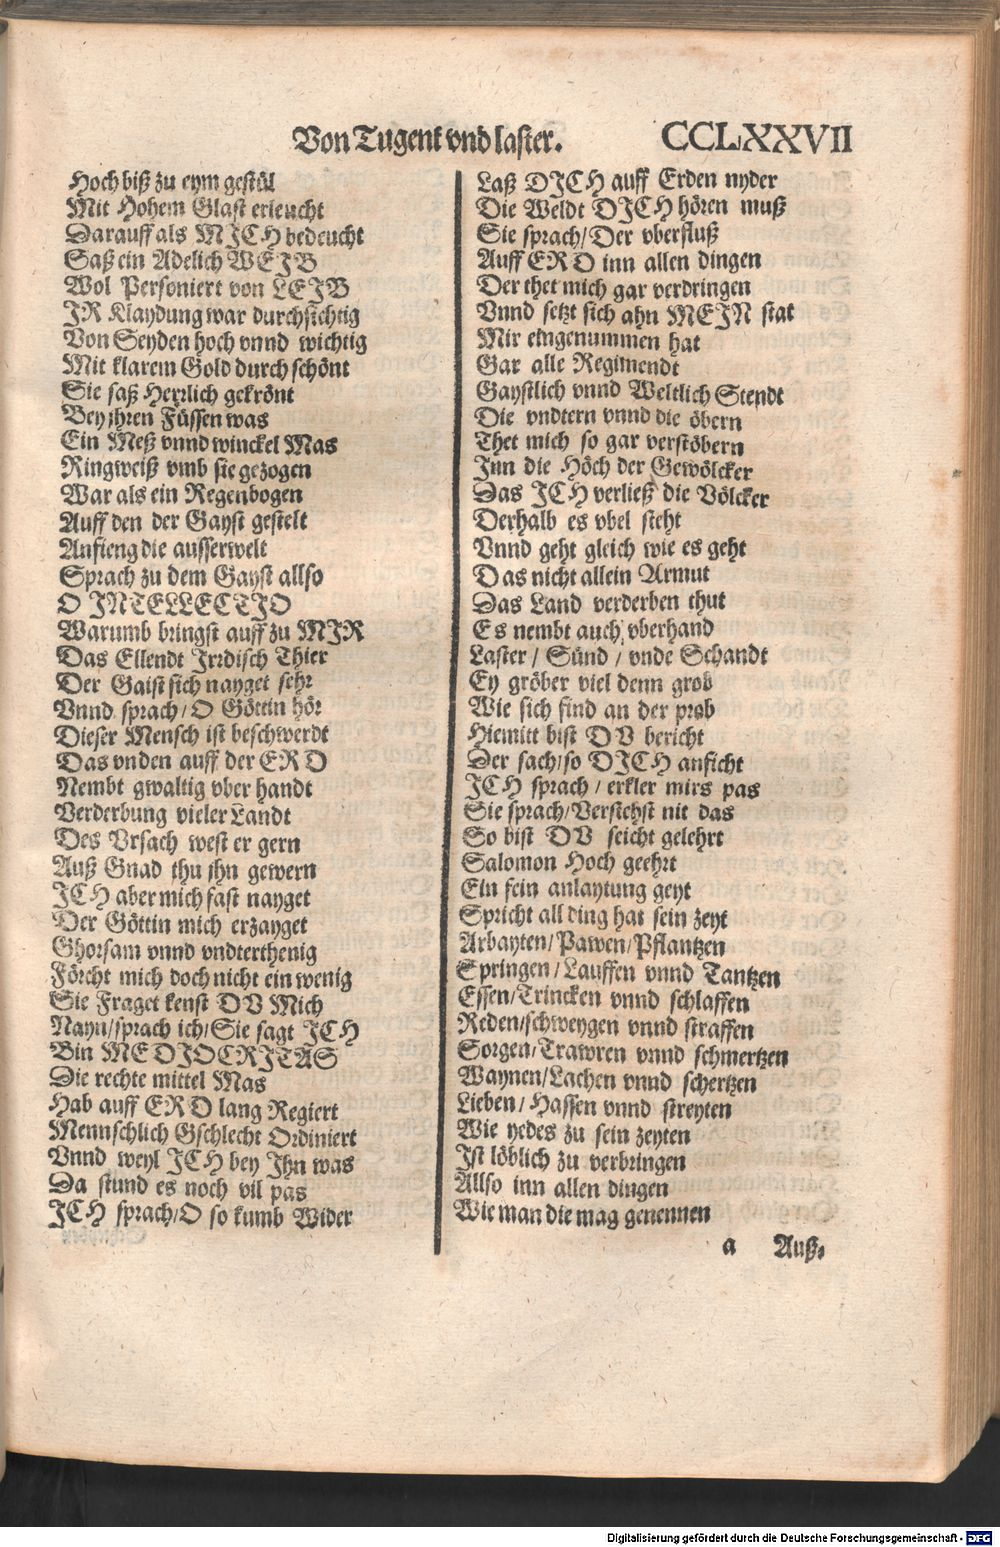 Von Tugent vnd laster. CCLXXVII
Hoch biß zu eym gestůl
Mit Hohem Glast erleucht
Darauff als MJCH bedeucht
Saß ein Adelich WEJB
Wol Personiert von LEJB
JR Klaydung war durchsichtig
Von Seyden hoch vnnd wichtig
Mit klarem Gold durch schönt
Sie saß Herrlich gekrönt
Bey jhren Füssen was
Ein Meß vnnd winckel Mas
Ringweiß vmb sie gezogen
War als ein Regenbogen
Auff den der Gayst gestelt
Anfieng die ausserwelt
Sprach zu dem Gayst allso
O JNTELLECTJO
Warumb bringst auff zu MJR
Das Ellendt Jrrdisch Thier
Der Gaist sich nayget sehr
Vnnd sprach/ O Göttin hör
Dieser Mensch ist beschwerdt
Das vnden auff der ERD
Nembt gwaltig vber handt
Verderbung vieler Landt
Des Vrsach west er gern
Auß Gnad thu jhn gewern
JCH aber mich fast nayget
Der Göttin mich erzayget
Ghorsam vnnd vndterthenig
Förcht mich doch nicht ein wenig
Sie Fraget kenst DV Mich
Nayn/ sprach ich/ Sie sagt JCH
Bin MEDJOCRJTAS
Die rechte mittel Mas
Hab auff ERD lang Regiert
Mennschlich Gschlecht Ordiniert
Vnnd weyl JCH bey Jhn was
Da stund es noch vil pas
JCH sprach/ O so kumb Wider
Laß DJCH auff Erden nyder
Die Weldt DJCH hören muß
Sie sprach/ Der vberfluß
Auff ERD inn allen dingen
Der thet mich gar verdringen
Vnnd setzt sich ahn MEJN stat
Mir eingenummen hat
Gar alle Regimendt
Gaystlich vnnd Weltlich Stendt
Die vndtern vnnd die öbern
Thet mich so gar verstöbern
Jnn die Höch der Gewölcker
Das JCH verließ die Völcker
Derhalb es vbel steht
Vnnd geht gleich wie es geht
Das nicht allein Armut
Das Land verderben thut
Es nembt auch vberhand
Laster / Sünd / vnde Schandt
Ey gröber viel denn grob
Wie sich find an der prob
Hiemitt bist DV bericht
Der sach/ so DJCH anficht
JCH sprach / erkler mirs pas
Sie sprach/ Verstehst nit das
So bist DV seicht gelehrt
Salomon Hoch geehrt
Ein fein anlaytung geyt
Spricht all ding hat sein zeyt
Arbayten/ Pawen/ Pflantzen
Springen/ Lauffen vnnd Tantzen
Essen/ Trincken vnnd schlaffen
Reden/ schweygen vnnd straffen
Sorgen/ Trawren vnnd schmertzen
Waynen/ Lachen vnnd schertzen
Lieben/ Hassen vnnd streyten
Wie yedes zu sein zeyten
Jst löblich zu verbringen
Allso inn allen dingen
Wie man die mag genennen
a Auß-
Digitalisierung gefördert durch die Deutsche Forschungsgemeinschaft - DFG